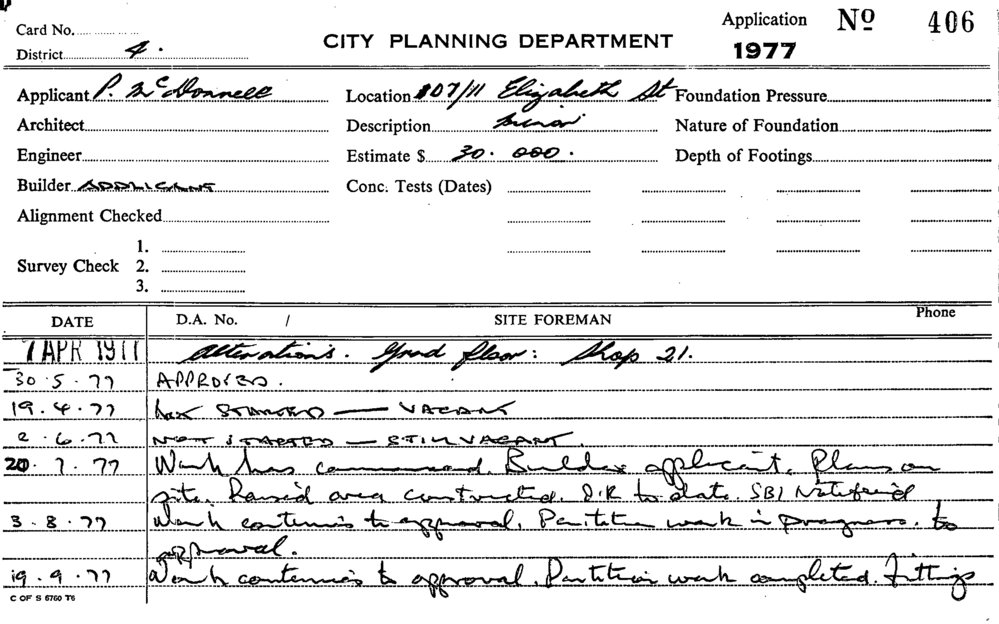 Card No.
District 4.
CITY PLANNING DEPARTMENT
Application No 406
1977
Applicant P. McDonnell Location 107/11 Elizabeth St Foundation Pressure
Architect Description Minor Nature of Foundation
Engineer Estimate $ 30.000. Depth of Footings
Builder APPLICANT Conc. Tests (Dates)
Alignment Checked
1.
Survey Check 2.
3.
DATE D.A. No. / SITE FOREMAN Phone
7 APR 1977 Alterations. Grnd floor: Shop 21.
30.5.77 APPROVED.
19.4.77 NOT STARTED — VACANT
2.6.77 NOT STARTED — STILL VACANT.
20.7.77 Work has commenced. Builder applicant. Plans on
site. Raised area constructed. O.K to date. SBI Notified
3.8.77 Work contenues to approval. Partition work in progress. to
approval.
19.9.77 Work contenues to approval. Partition work completed. Fittings
C OF S 6760 T6